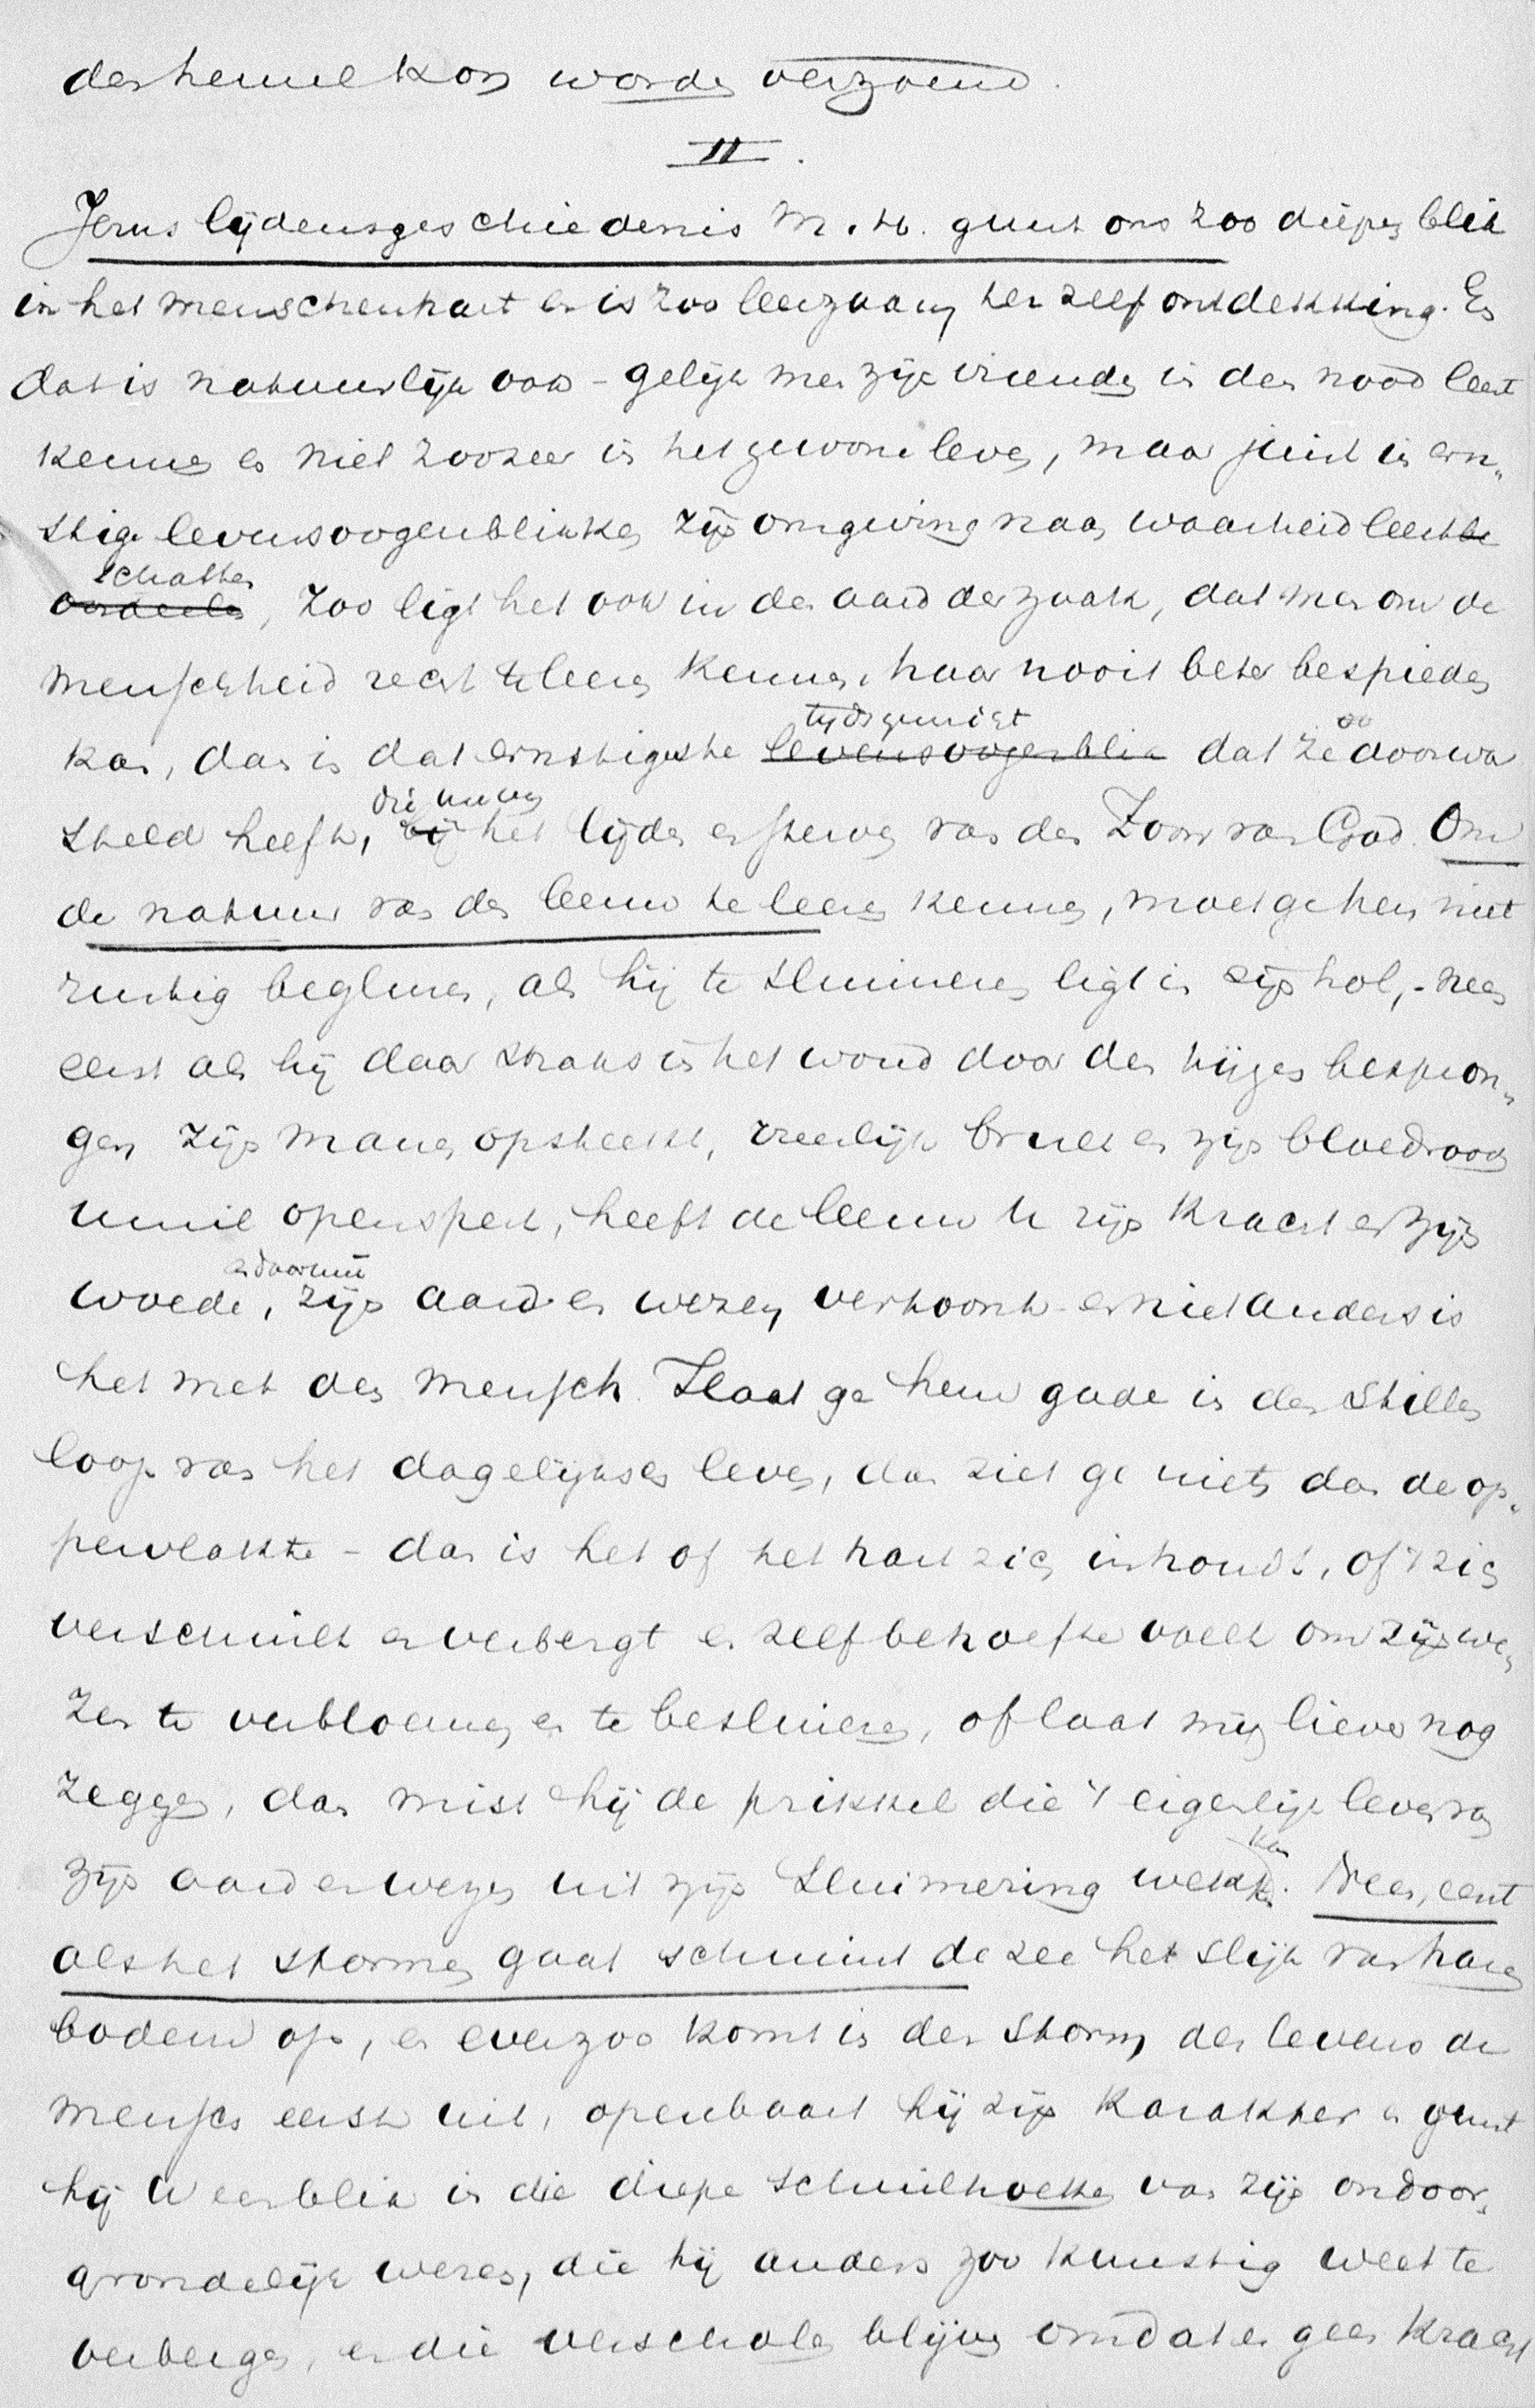 den hemel kon worden verzoend.
II.
Jezus lijdensgeschiedenis M. H. gunt ons zoo diepen blik
in het menschenhart en is zoo leerzaam ter zelfontdekking. En
dat is natuurlijk ook - gelijk men zijn vrienden in den nood leert
kennen en niet zoozeer in het gewone leven, maar juist in ern„
stige levensoogenblikken zijn omgeving naar waarheid leert be
schatten
oordeelen, zoo ligt het ook in den aard der zaak, dat men om de
menschheid recht te leeren kennen, haar nooit beter bespieden
tijdsgewricht zoo
kan, dan in dat ernstigste levensoogenblik dat ze doorwor
die uren van
steld heeft, bij het lijden en sterven van den Zoon van God. Om
de natuur van den leeuw te leeren kennen, moet ge hem niet
rustig begluren, als hij te sluimeren ligt in zijn hol, - neen
eerst als hij daar straks in het woud door den tijger bespron„
gen zijn manen opsteekt, vreeselijk brult en zijn bloedrooden
muil openspert, heeft de leeuw U zijn kracht en zijn
en daarmeê
woede, zijn aard en wezen vertoond - en niet anders is
het met den mensch. Slaat ge hem gade in den stillen
loop van het dagelijksch leven, dan ziet ge niets dan de op„
pervlakte - dan is het of het hart zich inhoudt, of 't zich
verschuilt en verbergt en zelf behoefte voelt om zijn we„
zen te verbloemen en te besluieren, of laat mij liever nog
zeggen, dan mist hij de prikkel die 't eigenlijk leven van
kan
zijn aard en wezen uit zijn sluimering wekken. Neen, eerst
als het stormen gaat schuimt de zee het slijk van haren
bodem op, en evenzoo komt in den storm des levens de
mensch eerst uit, openbaart hij zijn karakter en gunt
hij U een blik in die diepe schuilhoeken van zijn ondoor„
grondelijk wezen, die hij anders zoo kunstig weet te
verbergen, en die verscholen blijven omdat er geen kracht